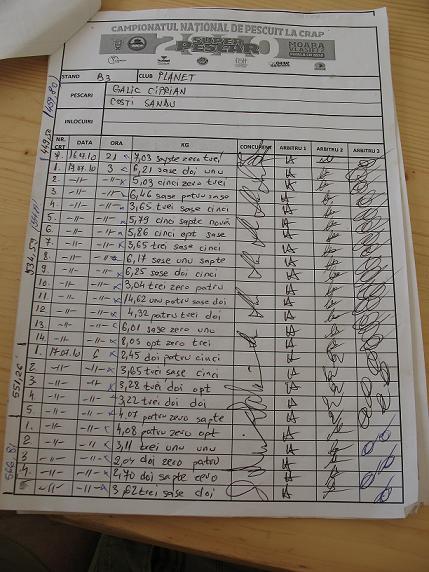 CAMPIONATUL NAȚIONAL DE PESCUIT LA CRAP
SUPER PESCAR MOARA VLASIEI 2
STAND B3 CLUB PLANET
PESCARI GALIC CIPRIAN
COSTI SANDU
INLOCUIRI
NR. CRT DATA ORA KG CONCURENT ARBITRU 1 ARBITRU 2 ARBITRU 3
16.07.10 21 7,03 sapte zero trei
1. 17.07.10 3 6,21 sase doi unu
2. -11- -11- 5,03 cinci zero trei
3. -11- -11- 6,46 sase patru sase
4. -11- -11- 3,65 trei sase cinci
5. -11- -11- 5,79 cinci sapte nouă
6. -11- -11- 5,86 cinci opt sase
7. -11- -11- 3,65 trei sase cinci
8. -11- -11- 6,17 sase unu sapte
9. -11- -11- 6,25 sase doi cinci
10. -11- -11- 3,04 trei zero patru
11 -11- -11- 14,62 unu patru sase doi
12 -11- -11- 4,32 patru trei doi
13 -11- -11- 6,01 sase zero unu
14. -11- -11- 8,03 opt zero trei
1. 17.07.10 6 2,45 doi patru cinci
2. -11- -11- 3,65 trei sase cinci
3. -11- -11- 3,28 trei doi opt
4 -11- -11- 3,22 trei doi doi
5 -11- -11- 4,07 patru zero sapte
1. -11- -11- 4,08 patru zero opt
2. -11- -11- 3,11 trei unu unu
3 -11- -11- 2,04 doi zero patru
4. -11- -11- 2,70 doi sapte zero
5 -11- -11- 3,62 trei sase doi